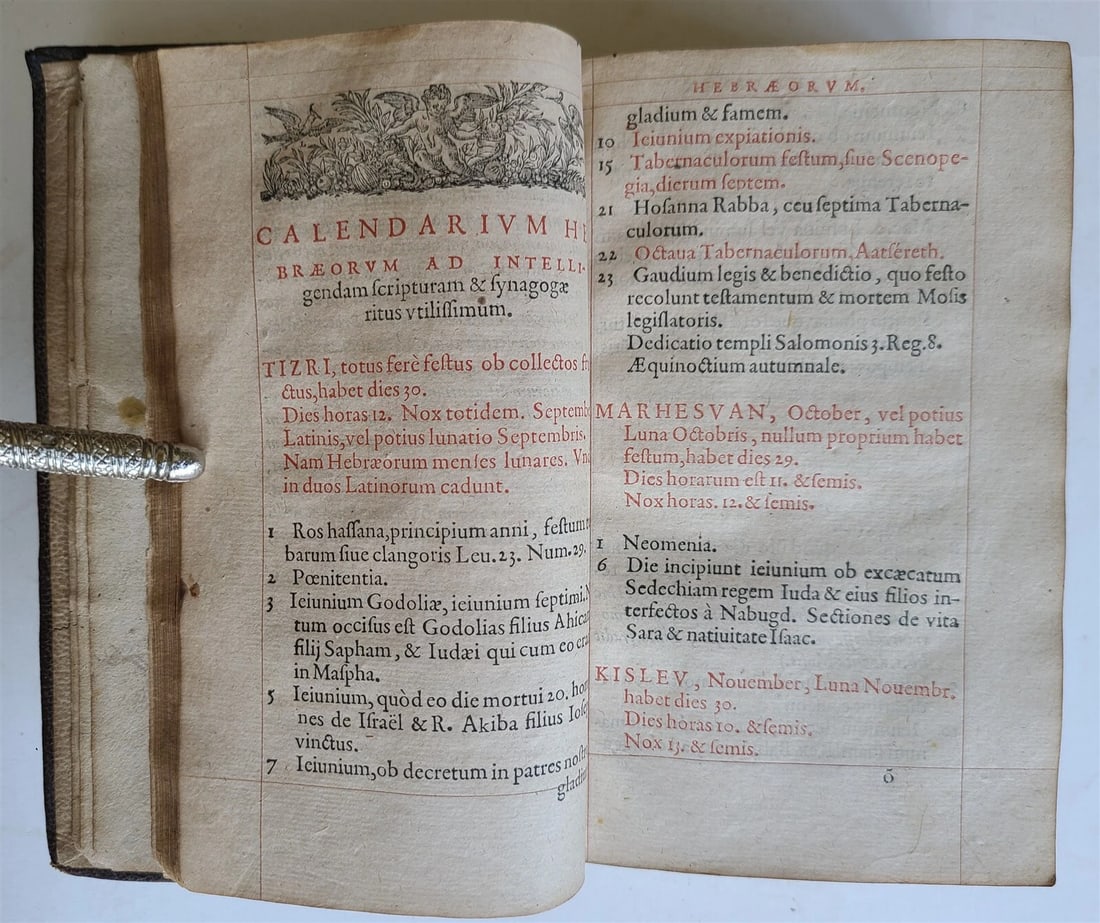 CALENDARIVM HE
BRÆORVM AD INTELLI-
gendam ſcripturam & ſynagogæ
ritus vtiliſſimum.
TIZRI, totus ferè feſtus ob collectos
ctus, habet dies 30.
Dies horas 12. Nox totidem. Septemb
Latinis, vel potius lunatio Septembris.
Nam Hebræorum menſes lunares. Vn
in duos Latinorum cadunt.
1 Ros haſſana, principium anni, feſtum
barum ſiue clangoris Leu. 23. Num. 29.
2 Pœnitentia.
3 Ieiunium Godoliæ, ieiunium ſeptimi.
tum occiſus eſt Godolias filius Ahica
filij Sapham, & Iudæi qui cum eo era
in Maſpha.
5 Ieiunium, quòd eo die mortui 20. ho
nes de Iſraël & R. Akiba filius Ioſe
vinctus.
7 Ieiunium, ob decretum in patres noſt
gladiu
HEBRÆORVM.
gladium & famem.
10 Ieiunium expiationis.
15 Tabernaculorum feſtum, ſiue Scenope-
gia, dierum ſeptem.
21 Hoſanna Rabba, ceu ſeptima Taberna-
culorum.
22 Octaua Tabernaculorum, Aatſéreth.
23 Gaudium legis & benedictio, quo feſto
recolunt teſtamentum & mortem Moſis
legiſlatoris.
Dedicatio templi Salomonis 3. Reg. 8.
Æquinoctium autumnale.
MARHESVAN, October, vel potius
Luna Octobris, nullum proprium habet
feſtum, habet dies 29.
Dies horarum eſt 11. & ſemis.
Nox horas. 12. & ſemis.
1 Neomenia.
6 Die incipiunt ieiunium ob excæcatum
Sedechiam regem Iuda & eius filios in-
terfectos à Nabugd. Sectiones de vita
Sara & natiuitate Iſaac.
KISLEV, Nouember, Luna Nouembr.
habet dies 30.
Dies horas 10. & ſemis.
Nox 13. & ſemis.
õ